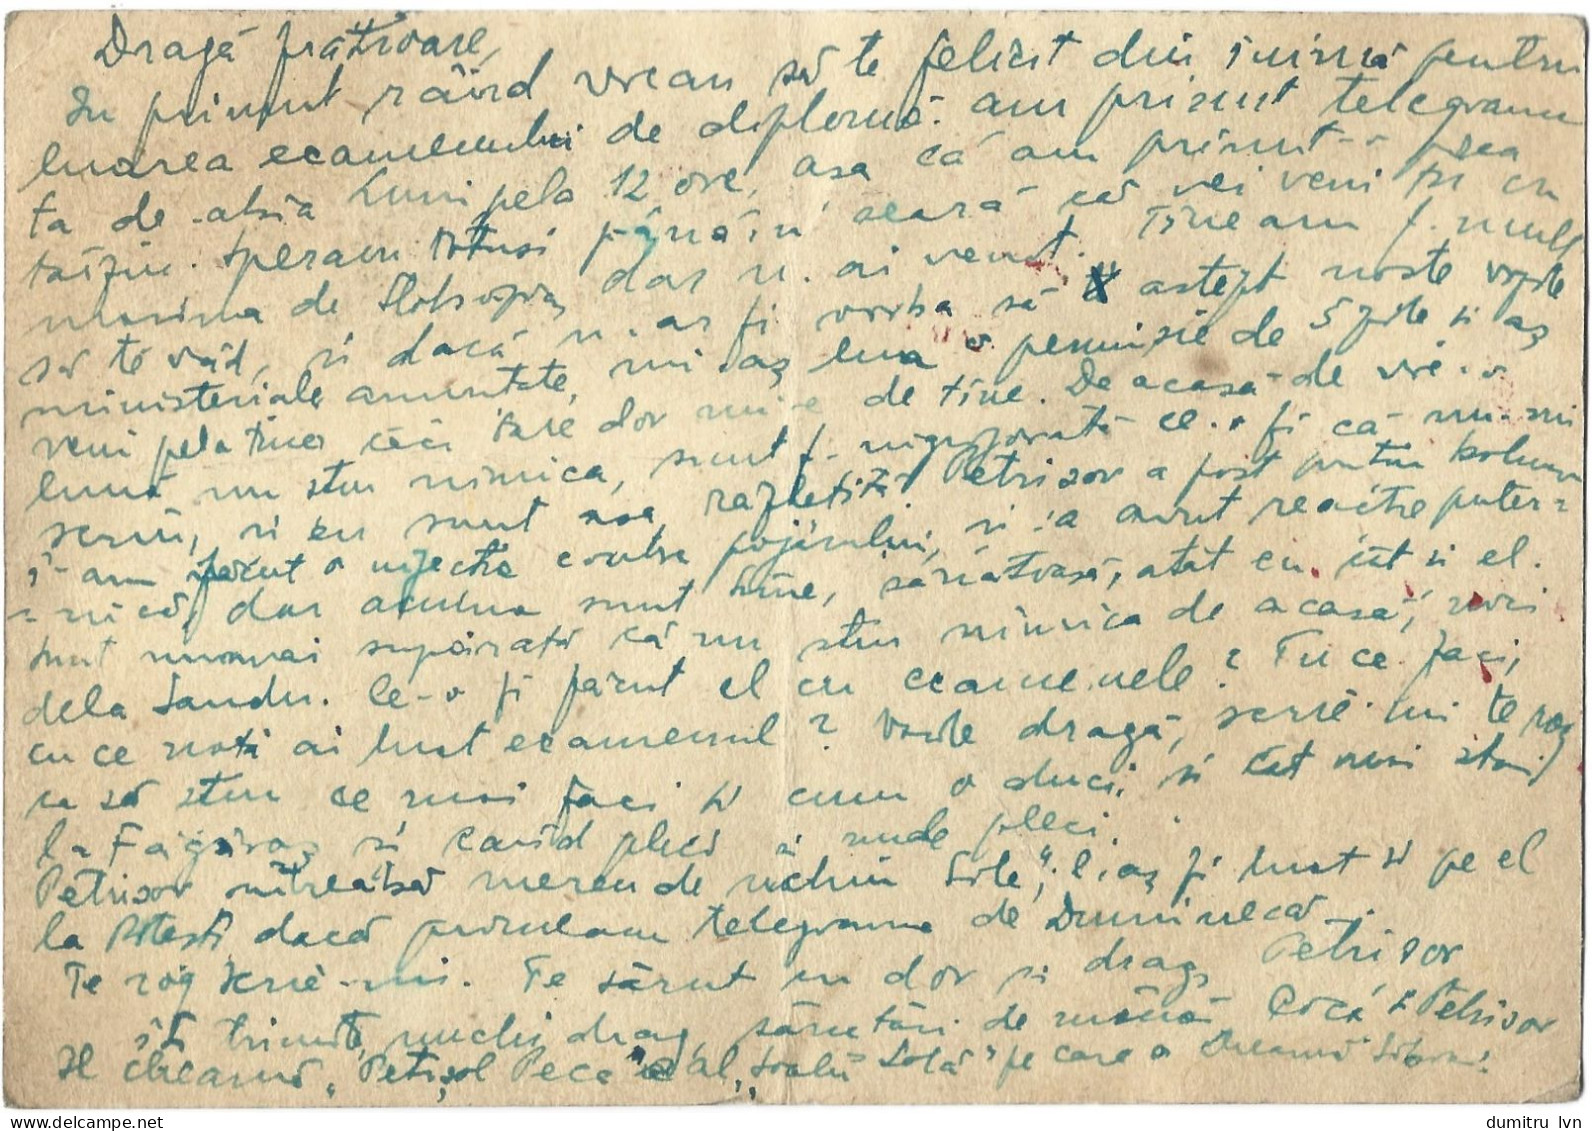 Dragă frățioare,
În primul rând vreau să te felicit din inimă pentru
luarea examenului de diplomă. am primit telegrama
ta de-abia Luni pela 12 ore, așa că am primit-o prea
târziu. Speram totuși până'n seară că vei veni și cu
mașina de dar n-ai venit. Țineam f. mult
să te văd, și dacă n-ar fi vorba să astept noste
ministeriale anunțate, mi-aș lua o permisie de 5 zile și aș
veni pela tine căci tare dor mi-e de tine. De acasă de vre-o
lună nu știu nimica, sunt f. ce-o fi că nu-mi
scriu, și eu sunt așa, Petrișor a fost
i-am făcut o injecție contra pojarului, și i-a avut reacție puter=
=nică, dar acuma sunt bine, sănătoasă, atât eu cât și el.
sunt numai supărată că nu știu nimica de acasă, nici
dela Sandu. Ce-o fi făcut el cu examenele? Tu ce faci,
cu ce notă ai luat examenul? Vasile dragă, scrie-mi te rog
ca să știu ce mai faci și cum o duci, și cât mai stai
la Făgăraș și când pleci și unde pleci.
Petrișor întreabă mereu de uchiu "Sile", l-aș fi luat și pe el
la dacă primeam telegrama de Duminecă.
Te rog scrie-mi. Te sărut cu dor și drag, Petrișor
îți trimite, unchi drag, sărutări de mână Coca și Petrișor
Il cheamă "Petișol Peca" al "Lolă" pe care o cheamă
dumitru lvn